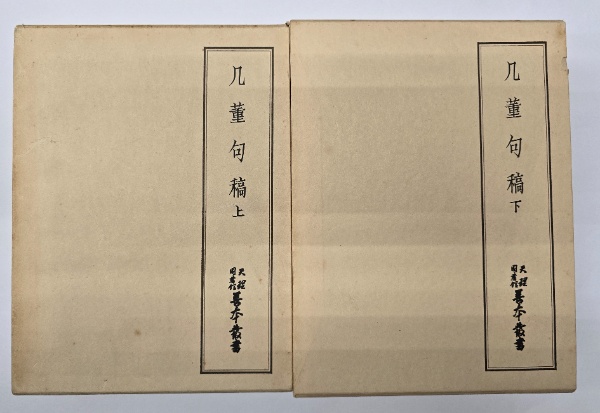 几董句稿上
天理
図書館
善本叢書
几董句稿下
天理
図書館
善本叢書